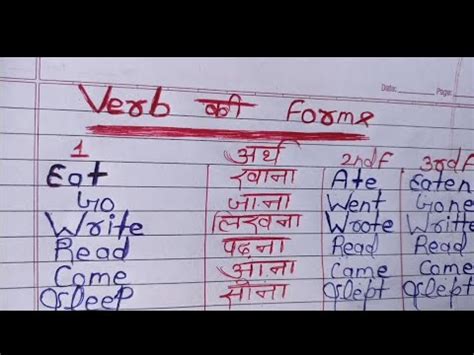 Date: Page:
Verb की Forms
1 अर्थ 2nd F 3rd F
Eat खाना Ate Eaten
Go जाना Went Gone
Write लिखना Wrote Writte
Read पढ़ना Read Read
Come आना Came Come
Sleep सोना Slept Slept